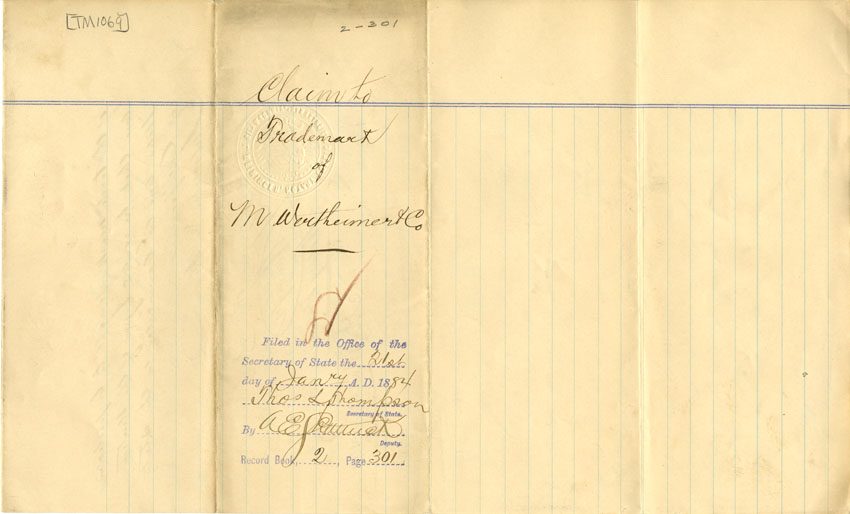 [TM1069]
2-301
Claim to
Trademark
of
M. Wertheimer & Co
Filed in the Office of the
Secretary of State the 21st
day of Janry A. D. 1884
Thos L Thompson
Secretary of State.
By A E
Deputy.
Record Book, 2, Page 301.